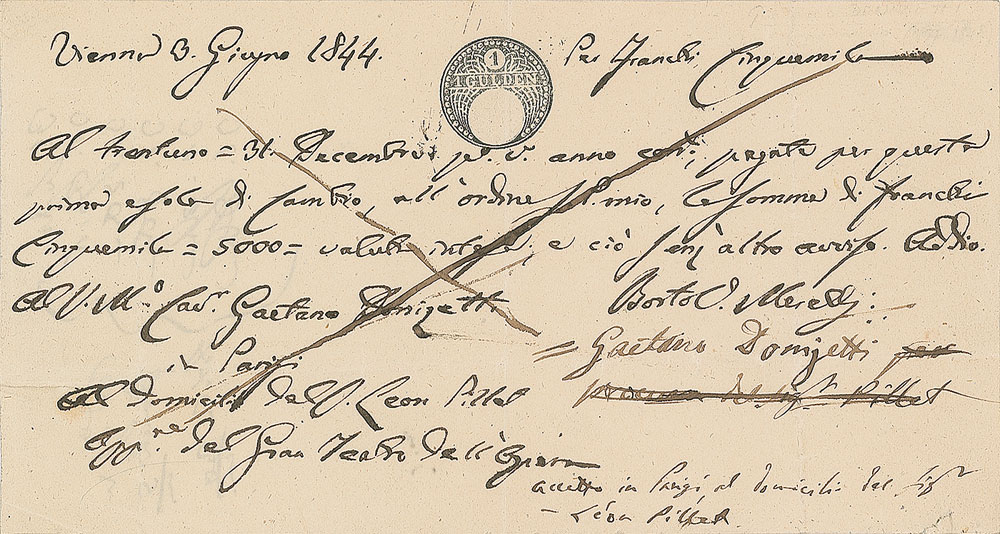 Vienna 3. Giugno 1844.
1
1 GULDEN
Per Franchi Cinquemila
Al trentuno = 31. Decembre anno corr: pagate per questa
prima e sola di Cambio, all'ordine S. mio, la somma di franchi
Cinquemila = 5000 = valuta intesa, e ciò senz'altro avviso. Addio.
Al S. Mo. Cavr. Gaetano Donizetti
in Parigi
Al domicilio del S. Leon Pillet
del Gran Teatro dell'Opera
Merelli:
= Gaetano Donizetti per
del sigr. Pillet
accetto in Parigi, al domicilio del sigr
- Léon Pillet.